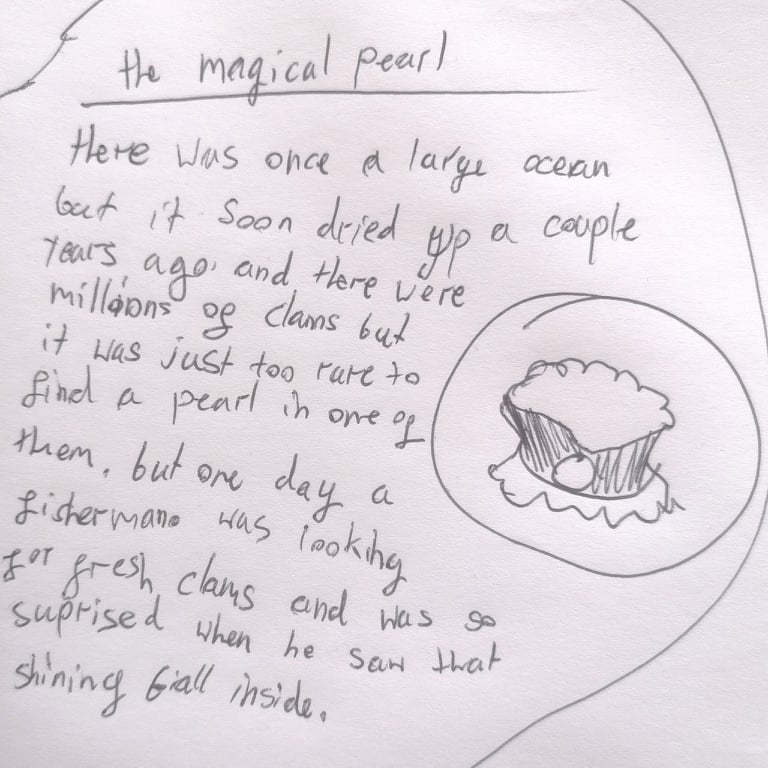 the magical pearl
there was once a large ocean
but it soon dried up a couple
years ago, and there were
millions of clams but
it was just too rare to
find a pearl in one of
them. but one day a
fisherman was looking
for fresh clams and was so
suprised when he saw that
shining ball inside.